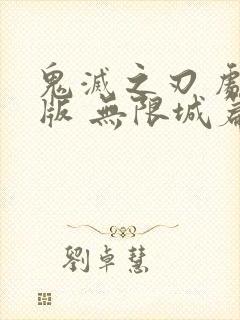 鬼滅之刃
版 無限城
劉卓慧